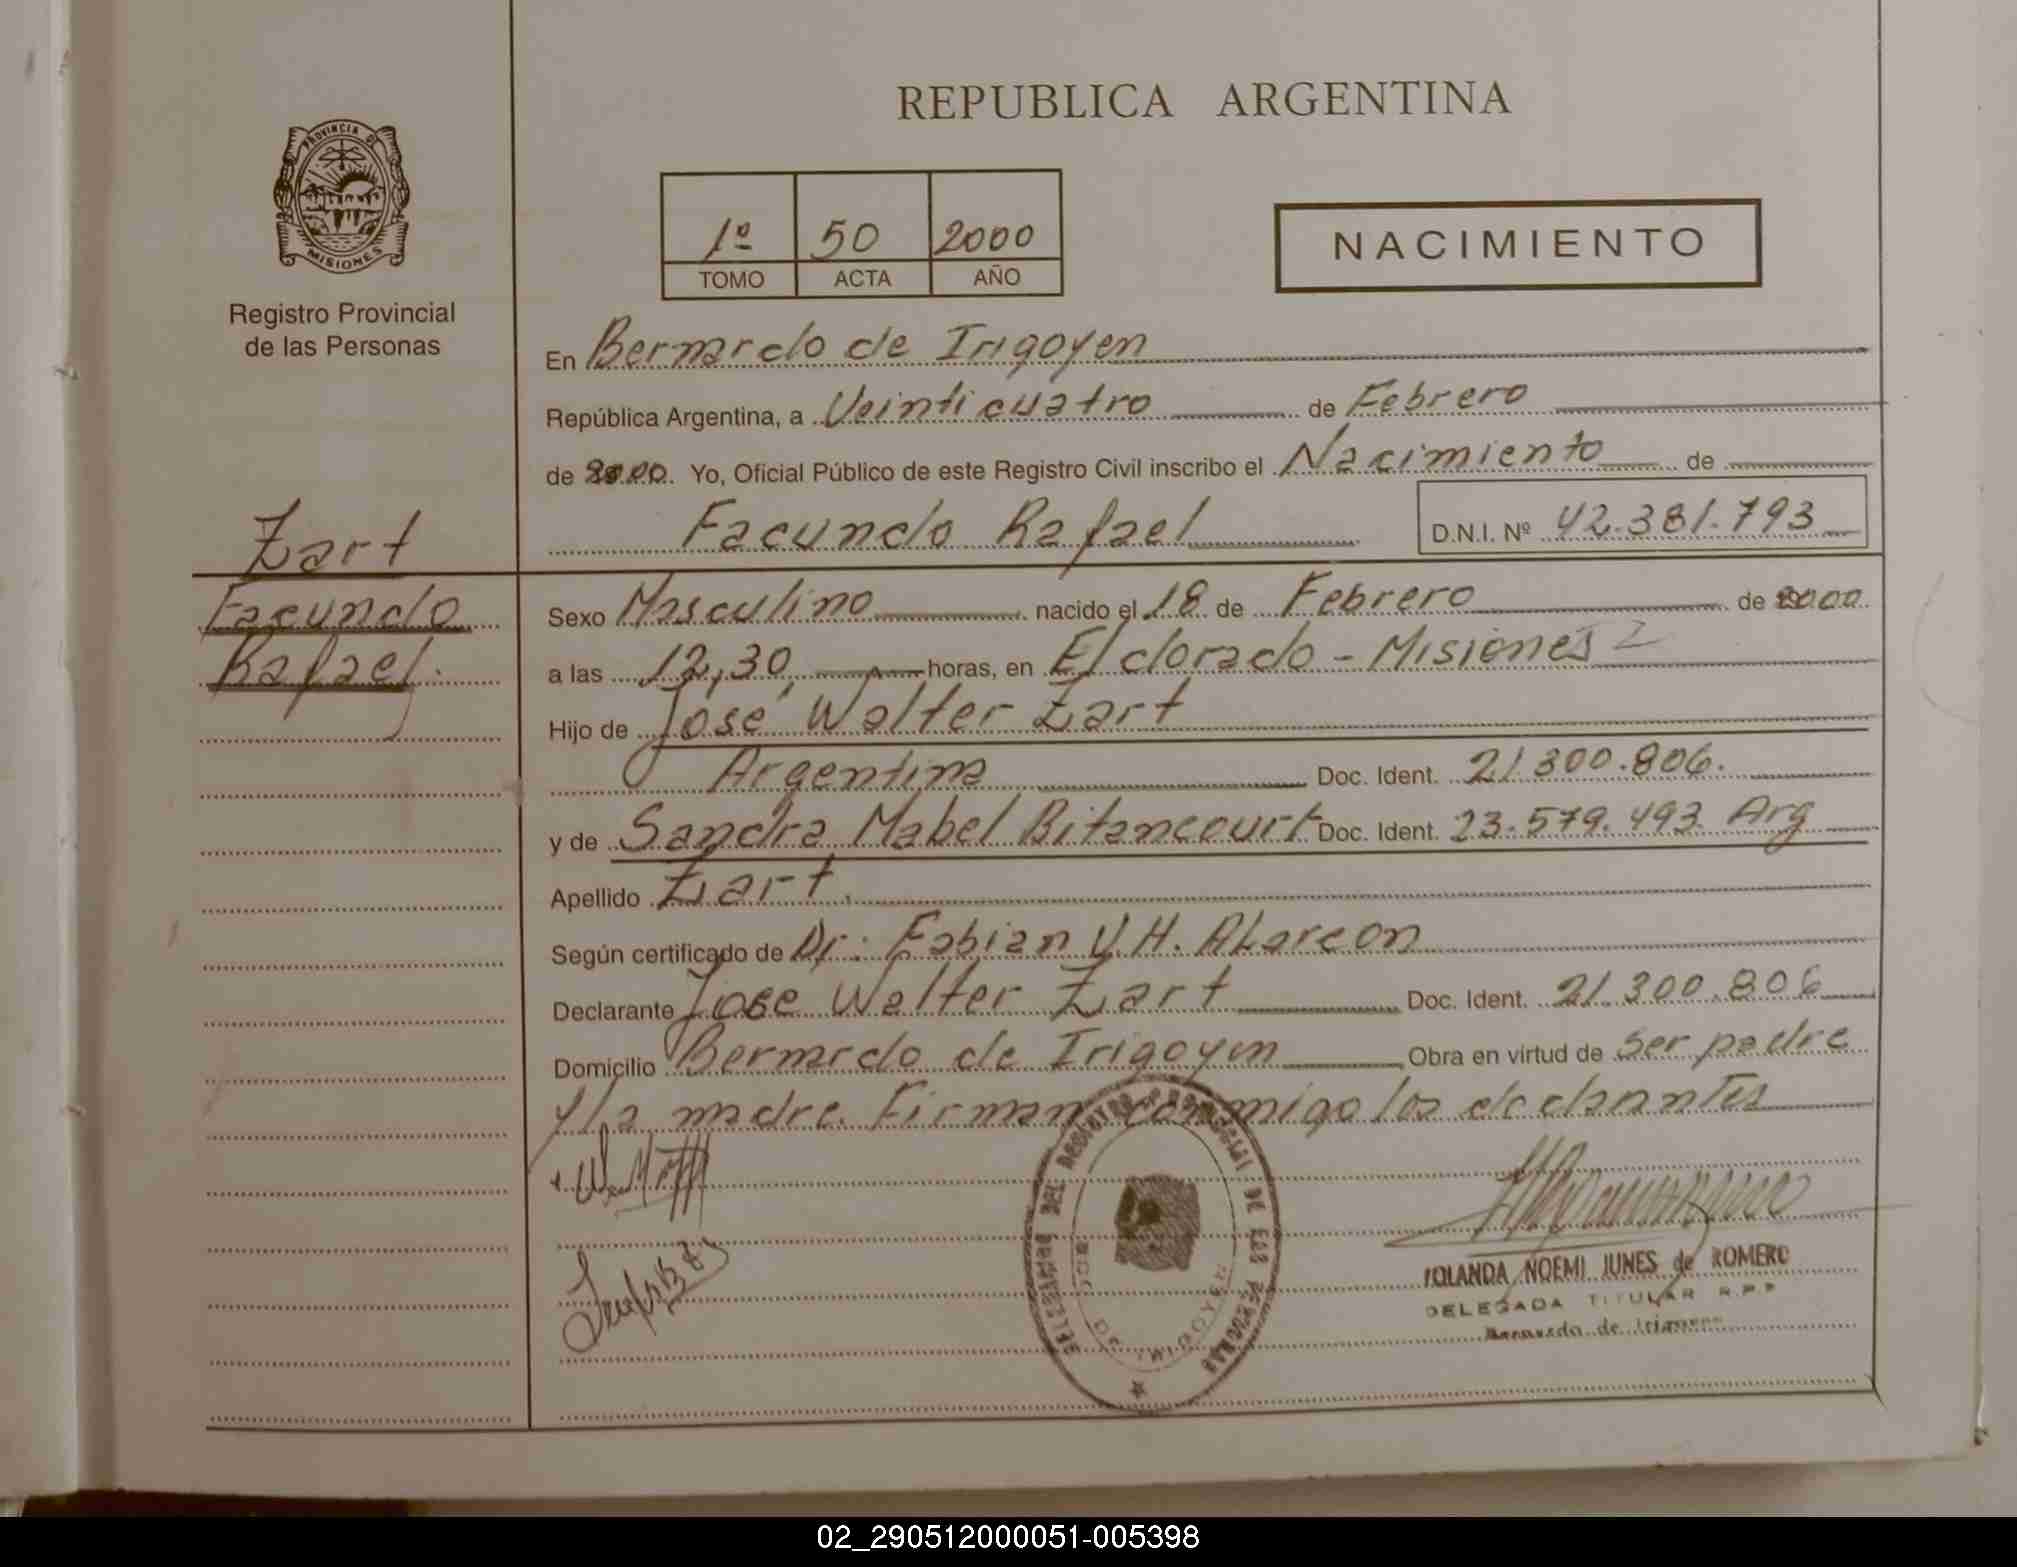 REPUBLICA ARGENTINA
PROVINCIA DE
MISIONES
Registro Provincial
de las Personas
1º 50 2000
TOMO ACTA AÑO
NACIMIENTO
En Bernardo de Irigoyen
República Argentina, a Veinticuatro de Febrero
de 2000. Yo, Oficial Público de este Registro Civil inscribo el Nacimiento de
Facundo Rafael D.N.I. Nº 42.381.793
Zart
Facundo
Rafael.
Sexo Masculino nacido el 18 de Febrero de 2000.
a las 12,30 horas, en Eldorado - Misiones
Hijo de José Walter Zart
Argentina Doc. Ident. 21.300.806.
y de Sandra Mabel Bitancourt Doc. Ident. 23.579.493. Arg
Apellido Zart.
Según certificado de Dr: Fabian V.H. ALarcon
Declarante Jose Walter Zart Doc. Ident. 21.300.806
Domicilio Bernardo de Irigoyen Obra en virtud de ser padre
y la madre. Firman conmigo los declarantes
DELEGADO DEL REGISTRO PROVINCIAL DE LAS PERSONAS
BDO. DE IRIGOYEN
YOLANDA NOEMI JUNES de ROMERO
DELEGADA TITULAR R.P.P
Bernardo de Irigoyen
02_290512000051-005398